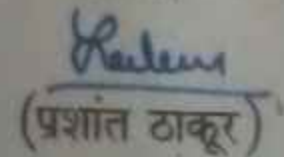 (प्रशांत ठाकूर)